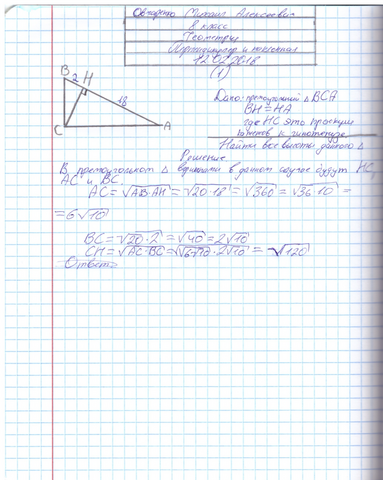 Михаил Алексеевич
8 класс
Геометрия
12.02.2018
(1)
B 2 H
18
C A
Дано: прямоугольный △ BCA
BH = HA
где HC это проекции
катетов к гипотенузе
Найти все высоты данного △
Решение
В прямоугольном △ высотами в данном случае будут HC,
AC и BC.
AC = √AB·AH = √20·18 = √360 = √36·10 =
= 6√10
BC = √20·2 = √40 = 2√10
CH = √AC·BC = √6√10·2√10 = √120
Ответ: